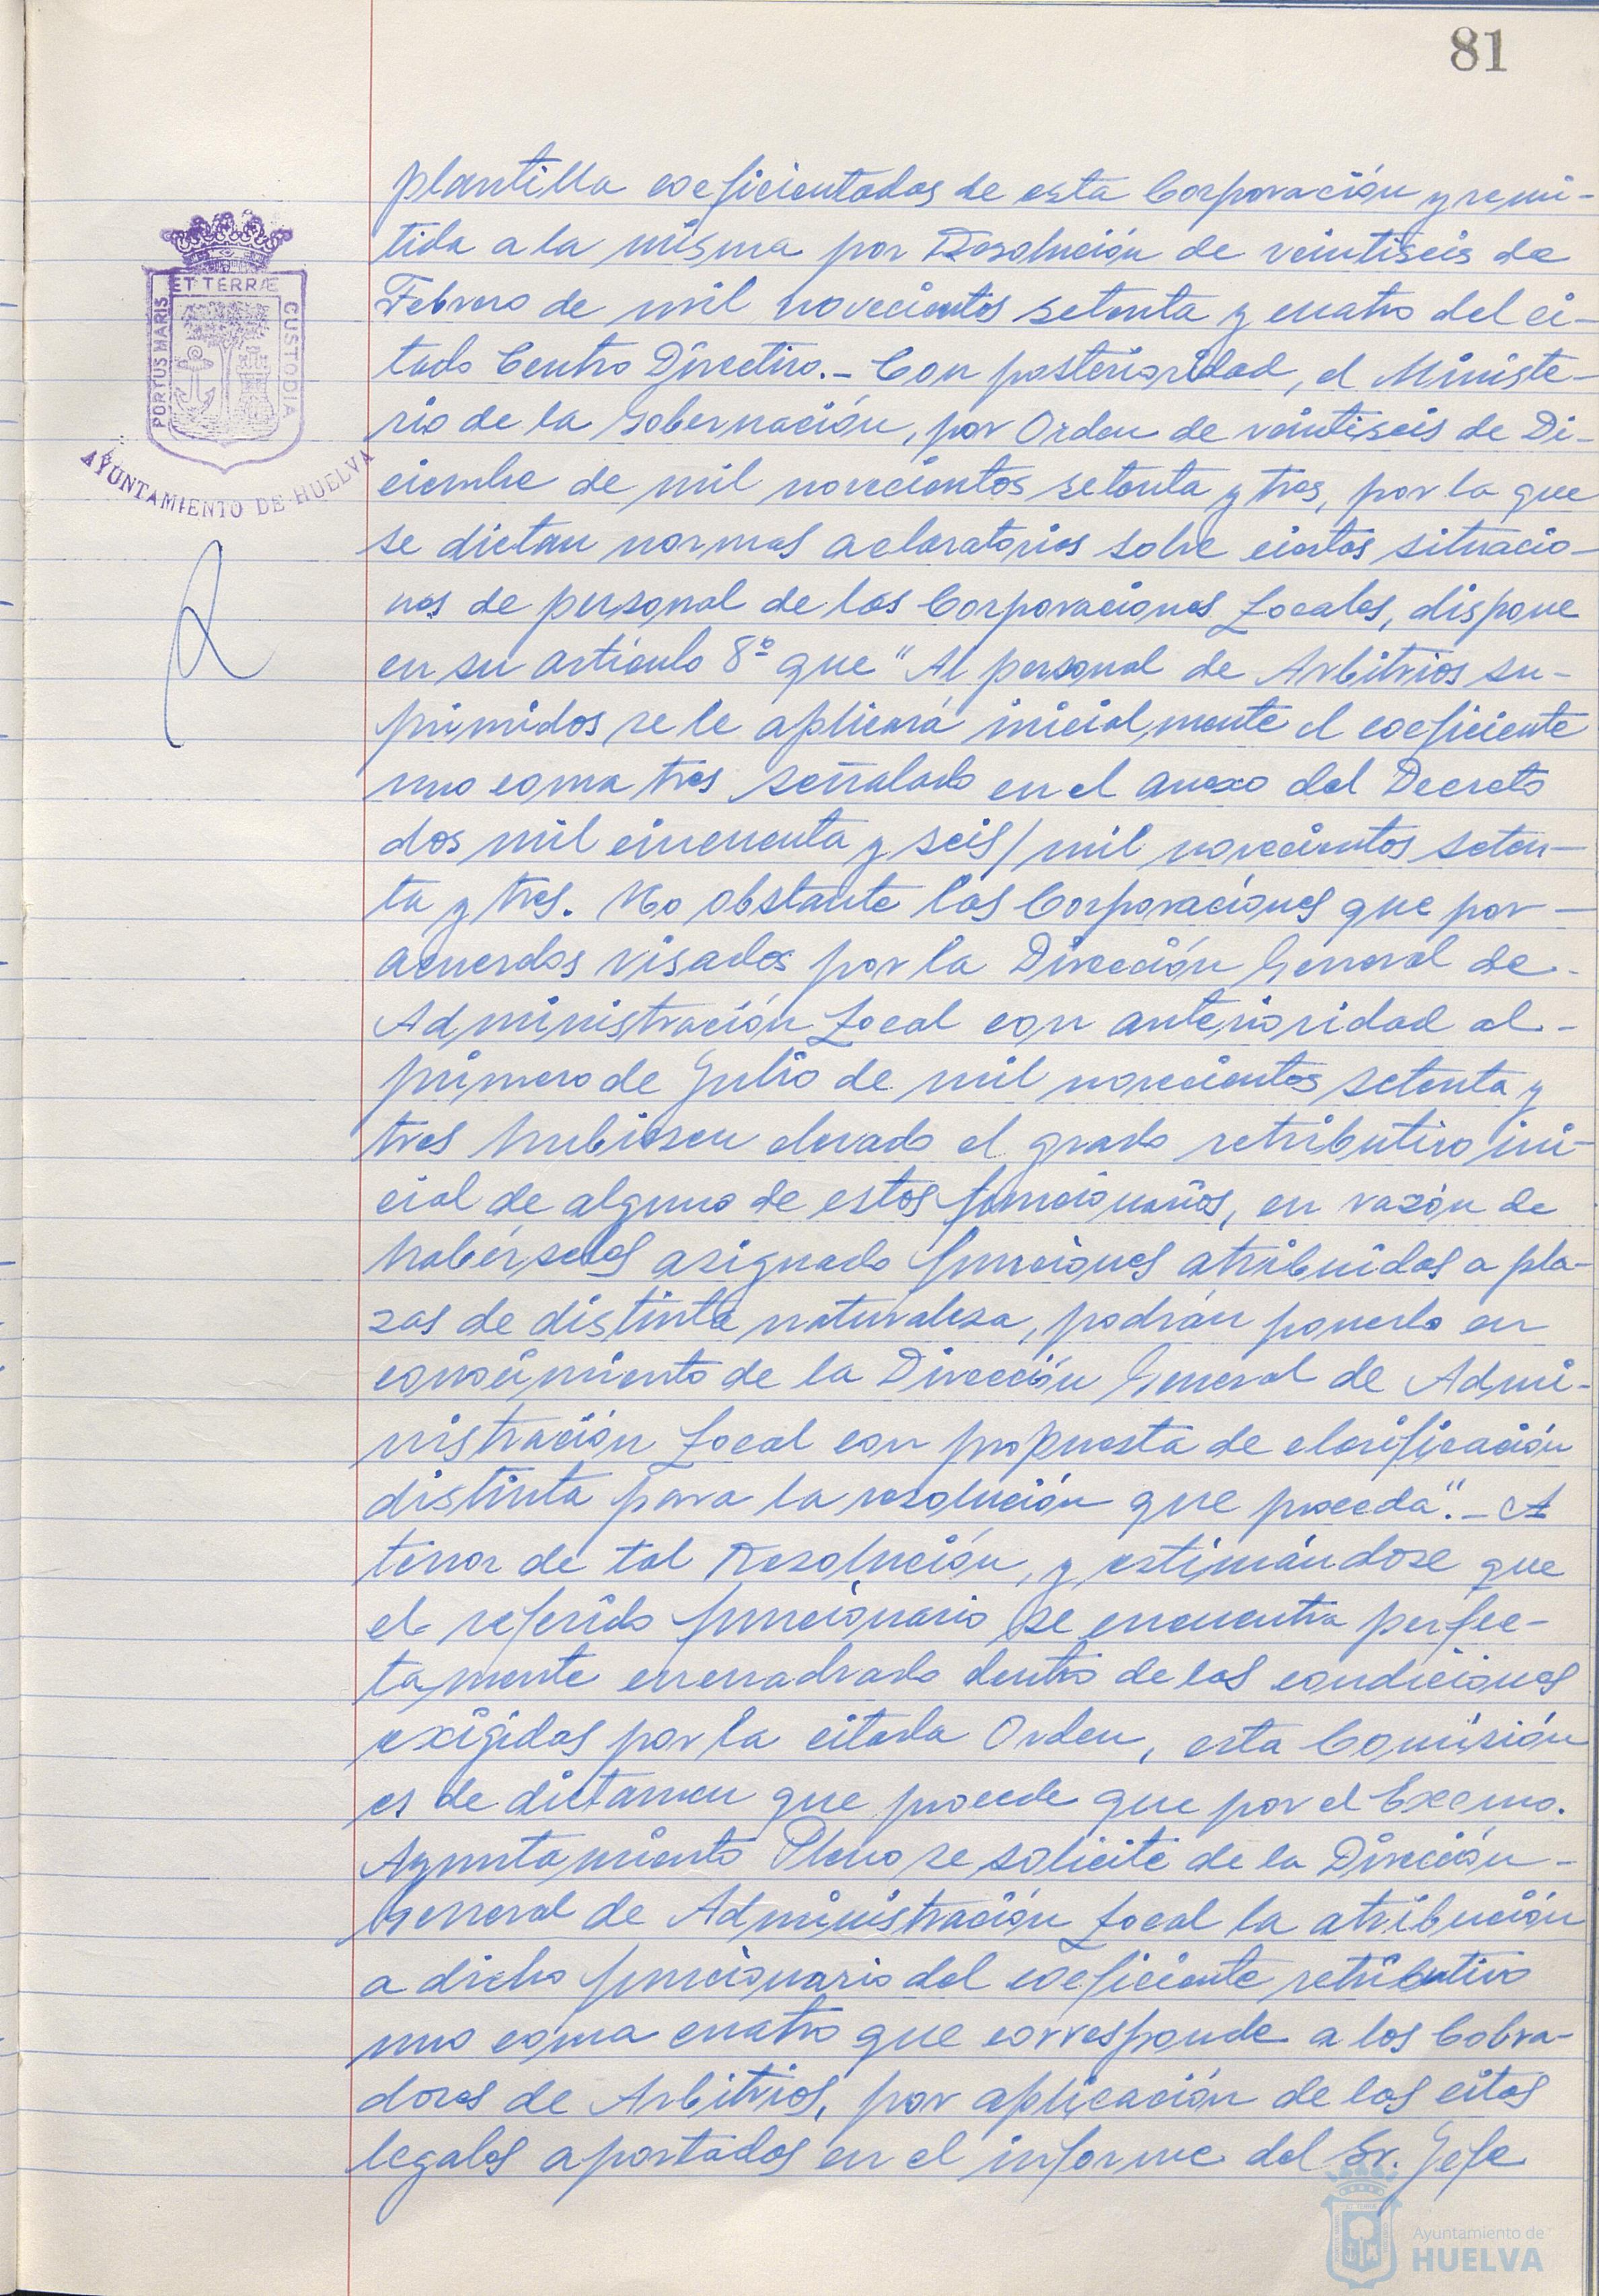 81
plantilla coeficientadas de esta Corporación y remi-
tida a la misma por Resolución de veintiseis de
Febrero de mil novecientos setenta y cuatro del ci-
tado Centro Directivo.- Con posterioridad, el Ministe-
rio de la Gobernación, por Orden de veintiseis de Di-
ciembre de mil novecientos setenta y tres, por la que
se dictan normas aclaratorias sobre ciertas situacio-
nes de personal de las Corporaciones Locales, dispone
en su artículo 8º que "Al personal de Arbitrios su-
primidos se le aplicará inicialmente el coeficiente
uno coma tres señalado en el anexo del Decreto
dos mil cincuenta y seis/mil novecientos seten-
ta y tres. No obstante las Corporaciones que por -
acuerdos visados por la Dirección General de -
Administración Local con anterioridad al -
primero de Julio de mil novecientos setenta y
tres hubiesen elevado el grado retributivo ini-
cial de alguno de estos funcionarios, en razón de
habérseles asignado funciones atribuidas a pla-
zas de distinta naturaleza, podrán ponerlo en
conocimiento de la Dirección General de Admi-
nistración Local con propuesta de clasificación
distinta para la resolución que proceda".- A
tenor de tal Resolución, y estimándose que
el referido funcionario se encuentra perfec-
tamente encuadrado dentro de las condiciones
exigidas por la citada Orden, esta Comisión
es de dictamen que procede que por el Excmo.
Ayuntamiento Pleno se solicite de la Dirección -
General de Administración Local la atribución
a dicho funcionario del coeficiente retributivo
uno coma cuatro que corresponde a los Cobra-
dores de Arbitrios, por aplicación de las citas
legales aportadas en el informe del Sr. Jefe
PORTUS MARIS
ET TERRÆ
CUSTODIA
AYUNTAMIENTO DE HUELVA
Ayuntamiento de
HUELVA